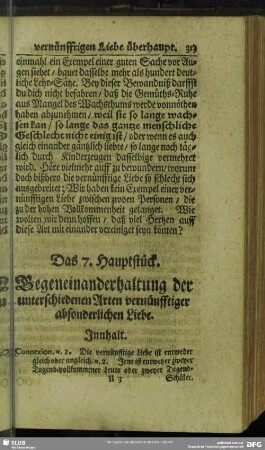 vernünfftigen Liebe überhaupt. 309
einmahl ein Exempel einer guten Sache vor Au-
gen siehet / bauet dasselbe mehr als hundert deut-
liche Lehr-Sätze. Bey dieser Bewandniß darffst
du dich nicht befahren / daß die Gemüths-Ruhe
aus Mangel des Wachsthums werde vonnöthen
haben abzunehmen / weil sie so lange wach-
sen kan / so lange das gantze menschliche
Geschlecht nicht einig ist / oder wenn es auch
gleich einander gäntzlich liebte / so lange noch täg-
lich durch Kinderzeugen dasselbige vermehret
wird. Höre vielmehr auff zu bewundern / warum
doch bißhero die vernünfftige Liebe so schlecht sich
ausgebreitet; Wir haben kein Exempel einer ver-
nünfftigen Liebe zwischen zweyen Personen / die
zu der hohen Vollkommenheit gelanget. Wie
wolten wir denn hoffen / daß viel Hertzen auff
diese Art mit einander vereiniget seyn könten?
Das 7. Hauptstück.
Gegeneinanderhaltung der
unterschiedenen Arten vernünfftiger
absonderlichen Liebe.
Innhalt.
Connexion. n. 1. Die vernünfftige Liebe ist entweder
gleich oder ungleich. n. 2. Jene ist entweder zweyer
Tugend-vollkommener Leute oder zweyer Tugend-
U 3 Schüler.
SLUB
DFG